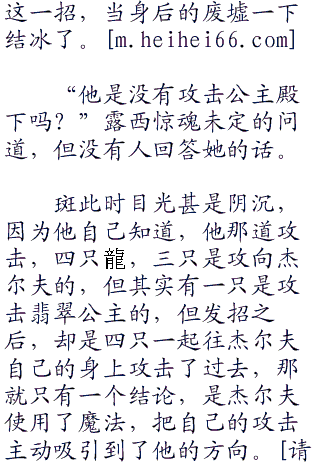 这一招，当身后的废墟一下
结冰了。[m.heihei66.com]
“他是没有攻击公主殿
下吗？”露西惊魂未定的问
道，但没有人回答她的话。
斑此时目光甚是阴沉，
因为他自己知道，他那道攻
击，四只龍，三只是攻向杰
尔夫的，但其实有一只是攻
击翡翠公主的，但发招之
后，却是四只一起往杰尔夫
自己的身上攻击了过去，那
就只有一个结论，是杰尔夫
使用了魔法，把自己的攻击
主动吸引到了他的方向。[请